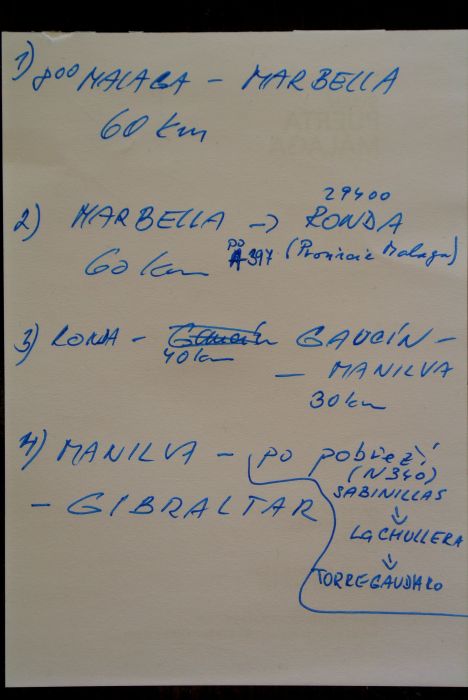 1) 800 MALAGA - MARBELLA
60 km
29400
2) MARBELLA -> RONDA
60 km po A-397 (Provincie Malaga)
3) RONDA - Gaucín GAUCÍN -
40 km - MANILVA
30 km
4) MANILVA - po pobřeží
(N340)
- GIBRALTAR
SABINILLAS
LA CHULLERA
TORREGUADIARO